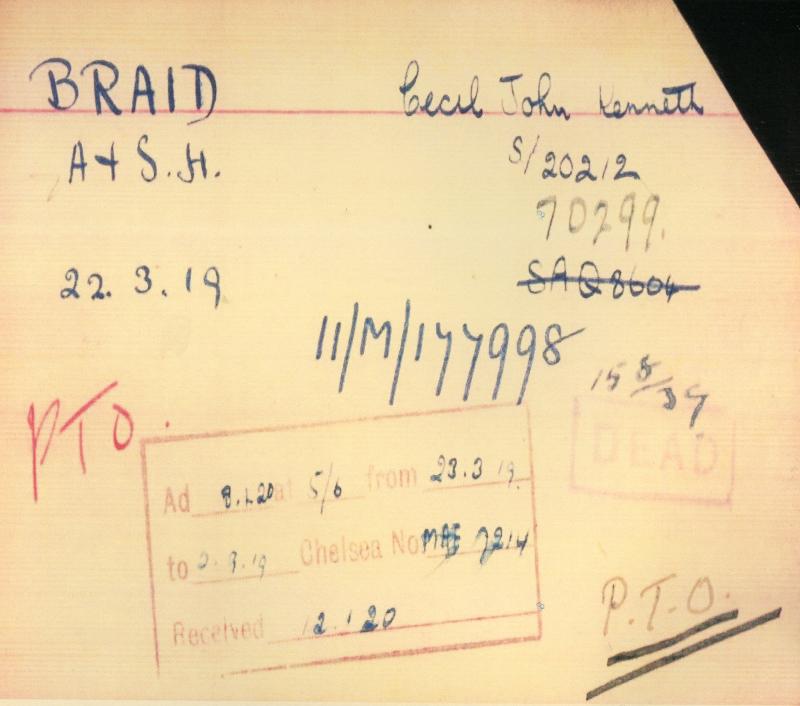 BRAID Cecil John Kenneth
A & S.H. S/20212
70299.
22.3.19 SAQ8604
11/M/177998
15 8/39
PTO.
DEAD
Ad 8.1.20 at 5/6 from 23.3 19.
to 2.9.19 Chelsea No 7214
Received 12.1 20
P.T.O.